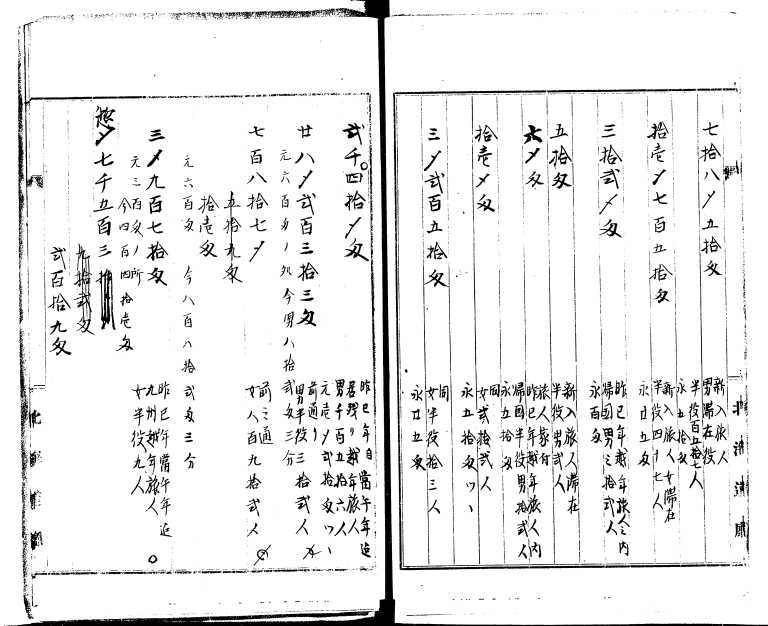 七拾八〆五拾匁
新入旅人
男滞在役
半役百五拾七人
永五拾匁
拾壱〆七百五拾匁
新入旅人女滞在
半役四十七人
永廿五匁
三拾弐〆匁
昨巳年越年旅人之内
帰国男三拾弐人
永百匁
五拾匁
新入旅人滞在
半役男弐人
六〆匁
旅人家付
昨巳年越年旅人内
帰国半役男拾弐人
永五拾匁
拾壱〆匁
同
女弐拾弐人
永五拾匁ツヽ
三〆弐百五拾匁
同
女半役拾三人
永廿五匁
弐千四拾〆匁
昨巳年自當午年迄
居残り越年旅人
男千百五拾六人
元壱〆弐拾匁ツヽ
廿八〆弐百三拾三匁
前通り
男半役三拾弐人
元六百匁ノ処今男八拾弐匁三分
七百八拾七〆
五拾九匁
前之通
女人百九拾弐人
拾壱匁
元六百匁 今八百八拾弐匁三分
三〆九百七拾匁
昨巳年當午年迄
九州越年旅人
女半役九人
元三百匁ノ所
今四百四拾壱匁
惣〆七千五百三拾
九拾弐匁
弐百拾九匁